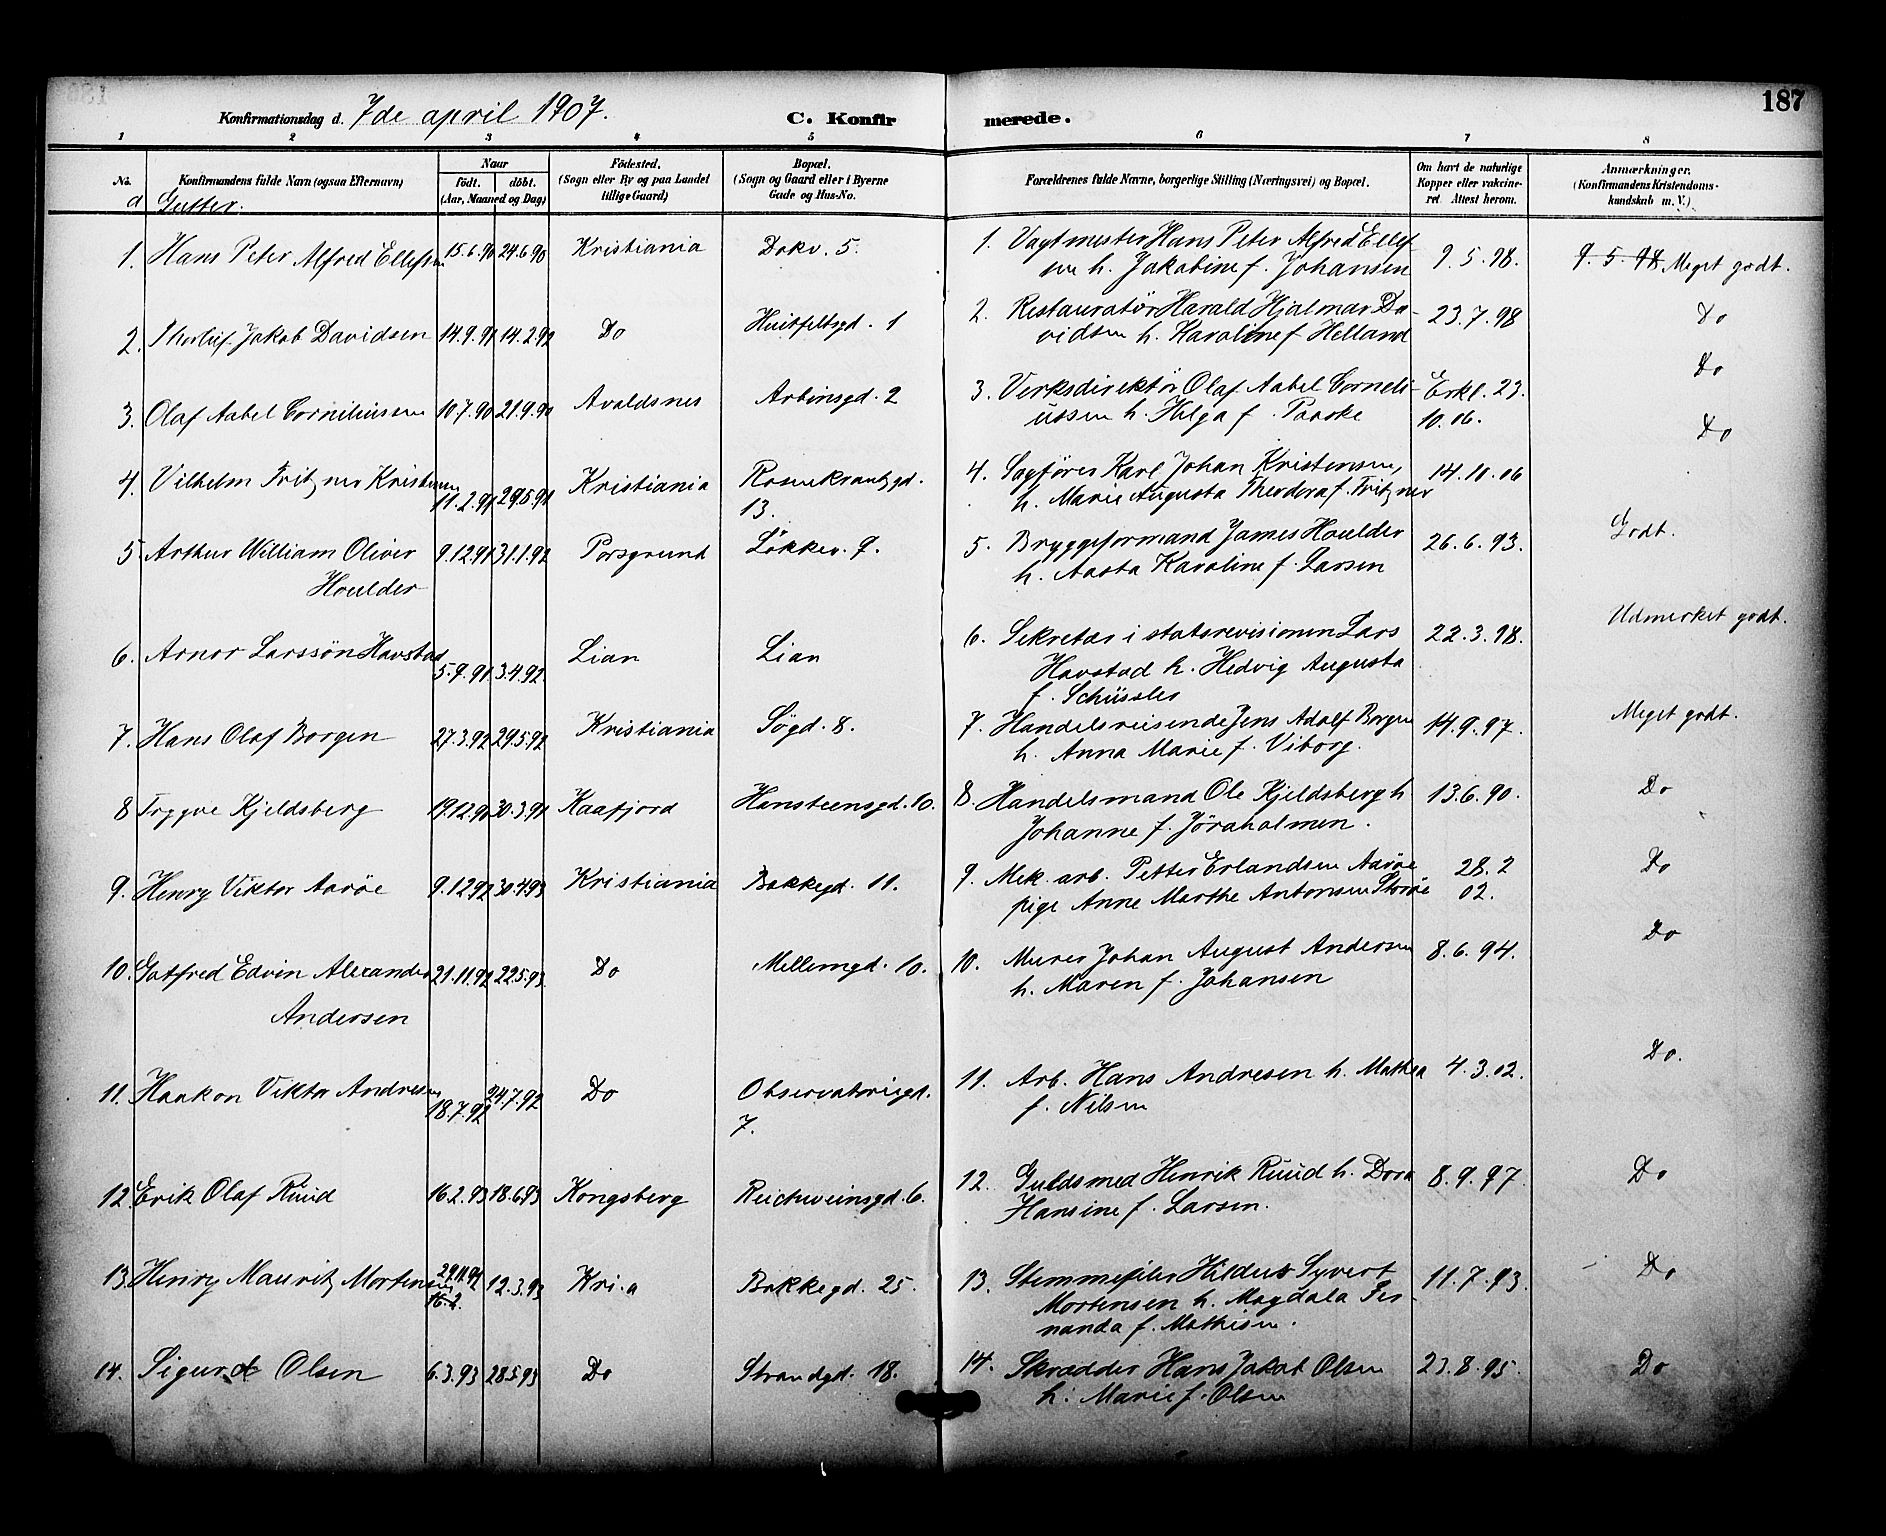 187
Konfirmationsdag d. 7de april 1907. C. Konfirmerede.
1 2 3 4 5 6 7 8
No. Konfirmandens fulde Navn (ogsaa Efternavn) Naar født. døbt. (Aar, Maaned og Dag) Födested. (Sogn eller By og paa Landet tillige Gaard) Bopæl. (Sogn og Gaard eller i Byerne Gade og Hus-No. Forældrenes fulde Navne, borgerlige Stilling (Næringsvei) og Bopæl. Om havt de naturlige Kopper eller vakcineret. Attest herom. Anmærkninger. (Konfirmandens Kristendomskundskab m. V.)
a Gutter.
1. Hans Peter Alfred Ellefsen 15.6.90 24.6.90 Kristiania Dokv. 5. 1. Vagtmester Hans Peter Alfred Ellef
sen h. Jakobine f. Johansen 9.5.98. 9.5.98 Meget godt.
2. Thorleif Jakob Davidsen 14.9.91 14.2.92 Do Huitfeltsgd. 1 2. Restauratør Harald Hjalmar Da-
vidsen h. Karoline f Helland 23.7.98 Do
3. Olaf Aabel Corneliussen 10.7.90 21.9.90 Avaldsnes Arbinsgd. 2 3. Verksdirektør Olaf Aabel Corneli-
ussen h. Helga f. Paaske Erkl. 23.
10.06. Do
4. Vilhelm Fritzner Kristensen 11.2.91 29.5.91 Kristiania Rosenkrantzgd.
13. 4. Sagfører Karl Johan Kristensen,
h. Marie Augusta Theodora f. Fritzner 14.10.06 Do
5 Arthur William Oliver
Houlder 9.12.91 31.1.92 Porsgrund Løkkev. 9. 5. Bryggeformand James Houlder
h. Aasta Karoline f. Larsen 26.6.93. Godt.
6. Arnor Larssön Havstad 5.9.91 3.4.92. Lian Lian 6. Sekretær i statsrevisionen Lars
Havstad h. Hedvig Augusta
f. Schüssler 22.3.98. Udmerket godt.
7. Hans Olaf Borgen 27.3.92 29.5.92 Kristiania Søgd. 8. 7. Handelsreisende Jens Adolf Borgen
h. Anna Marie f. Viborg. 14.9.97. Meget godt.
8 Trygve Kjeldsberg 19.12.90 30.3.91 Kaafjord Hansteensgd. 10. 8. Handelsmand Ole Kjeldsberg h
Johanne f. Jöraholmen. 13.6.90. Do
9. Henry Viktor Aarøe 9.12.92 30.4.93 Kristiania Bakkegd. 11. 9. Mek. arb. Petter Erlandsen Aarøe
pige Anne Marthe Antonsen 28.2
02. Do
10. Gotfred Edvin Alexander
Andersen 21.11.92 22.5.93. Do Mellemgd. 10. 10. Murer Johan August Andersen
h. Maren f. Johansen 8.6.94. Do
11. Haakon Viktor Andresen 18.7.92 24.7.92 Do Observatoriegd.
7. 11. Arb. Hans Andresen h. Mathea
f. Nilsen 4.3.02. Do.
12. Erik Olaf Ruud 16.2.93 18.6.93 Kongsberg Reichweinsgd. 6. 12. Guldsmed Henrik Ruud h. Dora
Hansine f. Larsen. 8.9.97. Do
13. Henry Mauritz Mortensen 29.11.92 16.2. 12.3.93 Kri.a Bakkegd. 25. 13. Stemmefiler Hildus Syvert
Mortensen h. Magdala Fer-
nanda f. Mathisen. 11.7.93. Do
14. Sigurd Olsen 6.3.93 28.5.93 Do Strandgd. 18. 14. Skrædder Hans Jakob Olsen
h. Marie f. Olsen 23.8.95. Do